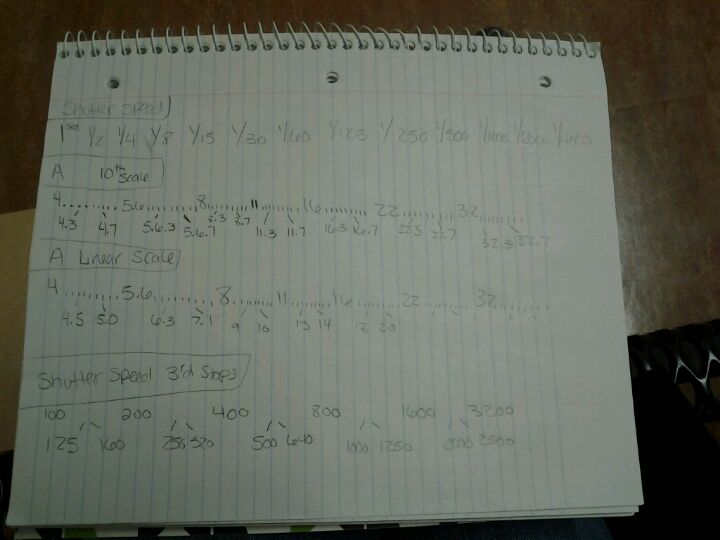 Shutter Speed
1 sec 1/2 1/4 1/8 1/15 1/30 1/60 1/125 1/250 1/500 1/1000 1/2000 1/4000
A 10th Scale
4 5.6 8 11 16 22 32
4.3 4.7 5.6.3 5.6.7 8.3 8.7 11.3 11.7 16.3 16.7 22.3 22.7 32.3 32.7
A Linear Scale
4 5.6 8 11 16 22 32
4.5 5.0 6.3 7.1 9 10 13 14 18 20
Shutter Speed 3'd Stops
100 200 400 800 1600 3200
125 160 250 320 500 640 1000 1250 2000 2500